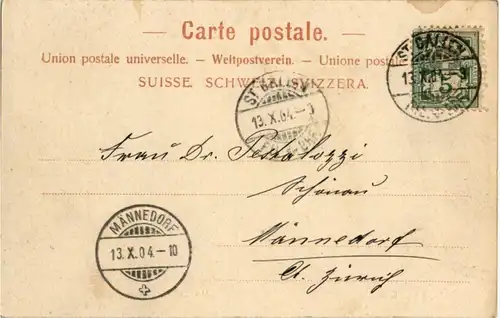 — Carte postale. —
Union postale universelle. — Weltpostverein. — Unione postale
SUISSE. SCHWEIZ. SVIZZERA.
ST. GALLEN
13.X.04.-9
ST. GALLEN
13.X.04.-9
5
Frau Dr. Pestalozzi
Schönau
Männedorf
Ct. Zürich
MÄNNEDORF
13.X.04.-10